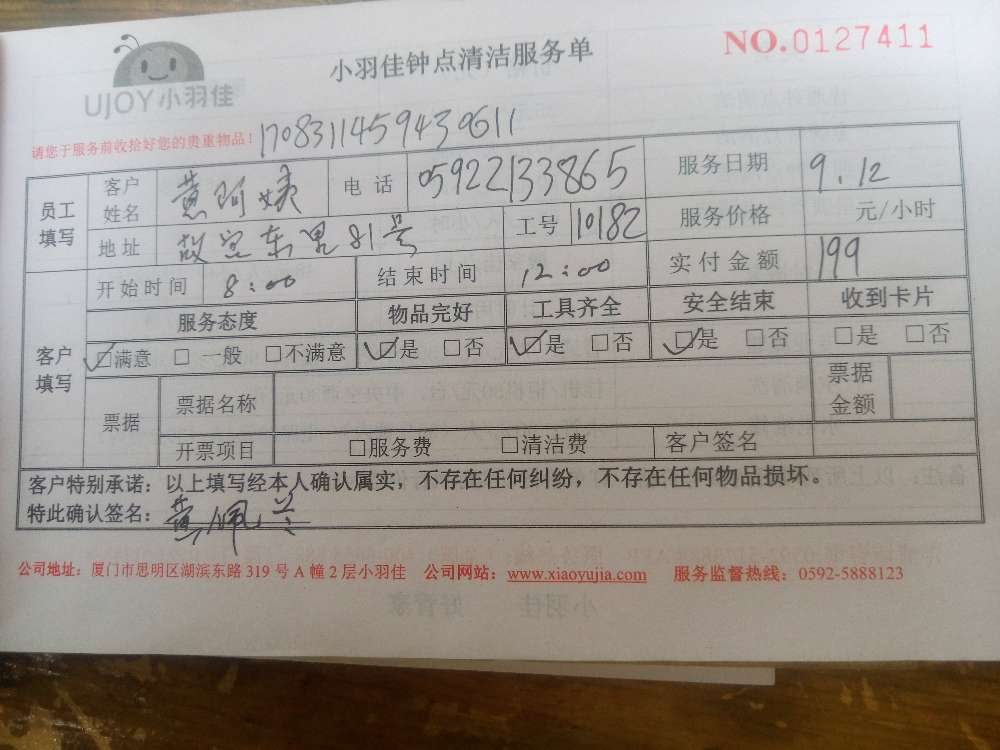 UJOY小羽佳
小羽佳钟点清洁服务单
NO.0127411
请您于服务前收拾好您的贵重物品！
1708311459439611
员工填写 客户姓名 黄阿姨 电话 05922133865 服务日期 9.12
地址 故宫东里81号 工号 10182 服务价格 元/小时
客户填写 开始时间 8:00 结束时间 12:00 实付金额 199
服务态度 物品完好 工具齐全 安全结束 收到卡片
☑满意 □一般 □不满意 ☑是 □否 ☑是 □否 ☑是 □否 □是 □否
票据 票据名称 票据金额
开票项目 □服务费 □清洁费 客户签名
客户特别承诺：以上填写经本人确认属实，不存在任何纠纷，不存在任何物品损坏。
特此确认签名：黄佩兰
公司地址：厦门市思明区湖滨东路 319 号 A 幢 2 层小羽佳 公司网站：www.xiaoyujia.com 服务监督热线：0592-5888123